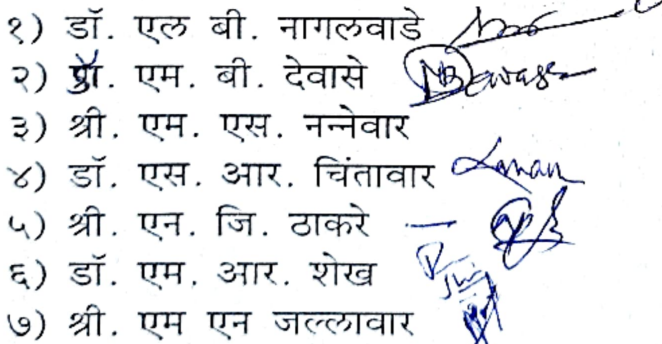 १) डॉ. एल बी. नागलवाडे
२) प्रा. एम. बी. देवासे
३) श्री. एम. एस. नन्नेवार
४) डॉ. एस. आर. चिंतावार
५) श्री. एन. जि. ठाकरे –
६) डॉ. एम. आर. शेख
७) श्री. एम एन जल्लावार